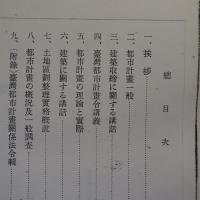 總目次
一、挨拶
二、都市計畫一般
三、建築取締に關する講話
四、臺灣都市計畫令講義
五、都市計畫の理論と實際
六、建築に關する講話
七、土地區劃整理實務概說
八、都市計畫の概況及一般調査
九、(附錄)臺灣都市計畫關係法令輯